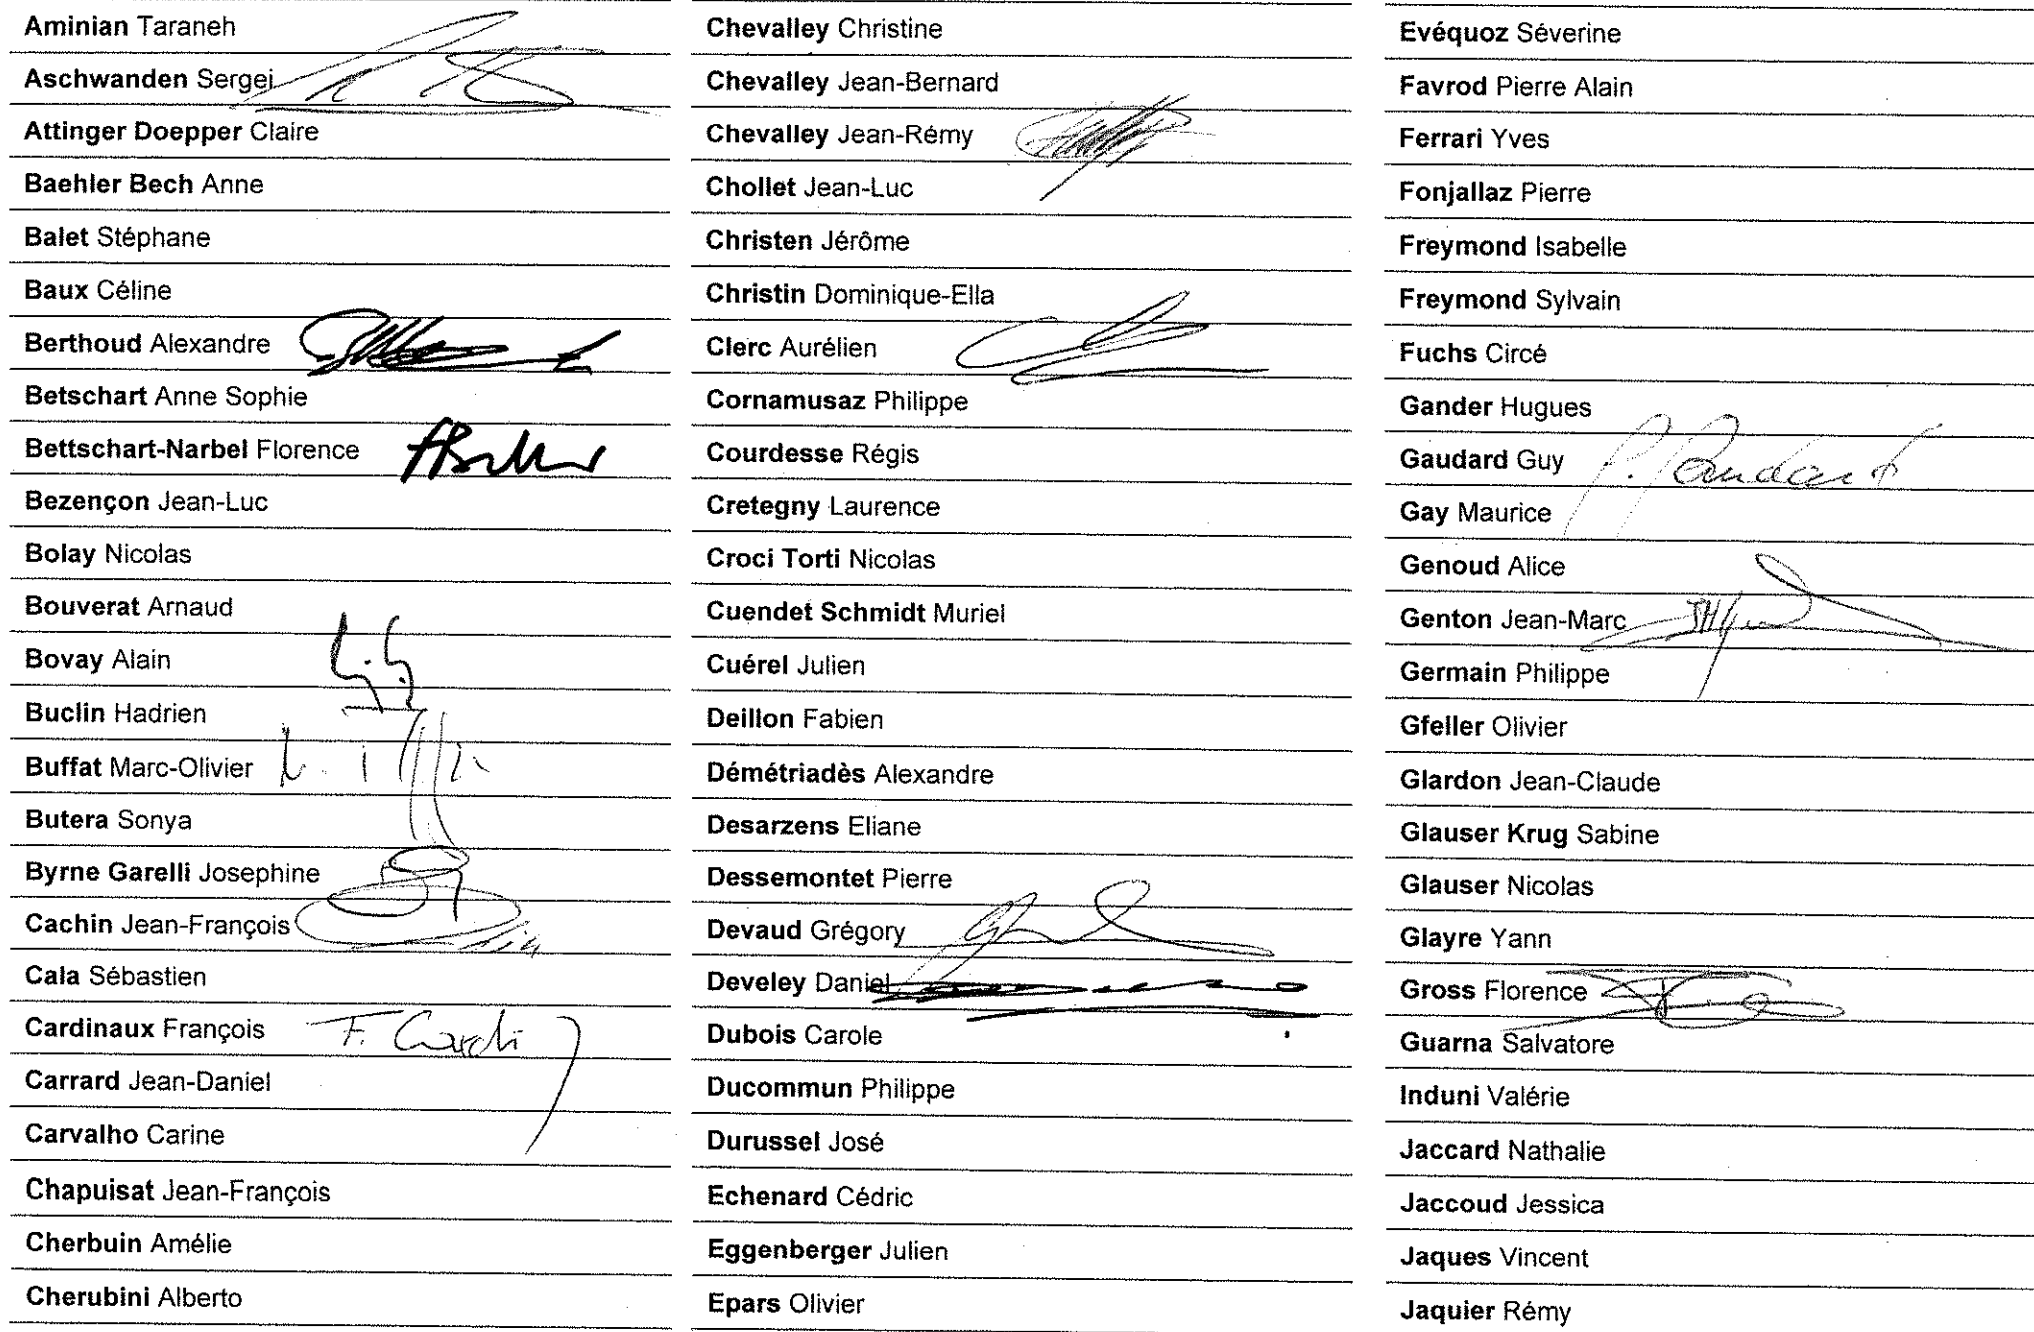 Aminian Taraneh
Aschwanden Sergei
Attinger Doepper Claire
Baehler Bech Anne
Balet Stéphane
Baux Céline
Berthoud Alexandre
Betschart Anne Sophie
Bettschart-Narbel Florence
Bezençon Jean-Luc
Bolay Nicolas
Bouverat Arnaud
Bovay Alain
Buclin Hadrien
Buffat Marc-Olivier
Butera Sonya
Byrne Garelli Josephine
Cachin Jean-François
Cala Sébastien
Cardinaux François F. Cardi
Carrard Jean-Daniel
Carvalho Carine
Chapuisat Jean-François
Cherbuin Amélie
Cherubini Alberto
Chevalley Christine
Chevalley Jean-Bernard
Chevalley Jean-Rémy
Chollet Jean-Luc
Christen Jérôme
Christin Dominique-Ella
Clerc Aurélien
Cornamusaz Philippe
Courdesse Régis
Cretegny Laurence
Croci Torti Nicolas
Cuendet Schmidt Muriel
Cuérel Julien
Deillon Fabien
Démétriadès Alexandre
Desarzens Eliane
Dessemontet Pierre
Devaud Grégory
Develey Daniel
Dubois Carole
Ducommun Philippe
Durussel José
Echenard Cédric
Eggenberger Julien
Epars Olivier
Evéquoz Séverine
Favrod Pierre Alain
Ferrari Yves
Fonjallaz Pierre
Freymond Isabelle
Freymond Sylvain
Fuchs Circé
Gander Hugues
Gaudard Guy Gaudard
Gay Maurice
Genoud Alice
Genton Jean-Marc
Germain Philippe
Gfeller Olivier
Glardon Jean-Claude
Glauser Krug Sabine
Glauser Nicolas
Glayre Yann
Gross Florence
Guarna Salvatore
Induni Valérie
Jaccard Nathalie
Jaccoud Jessica
Jaques Vincent
Jaquier Rémy